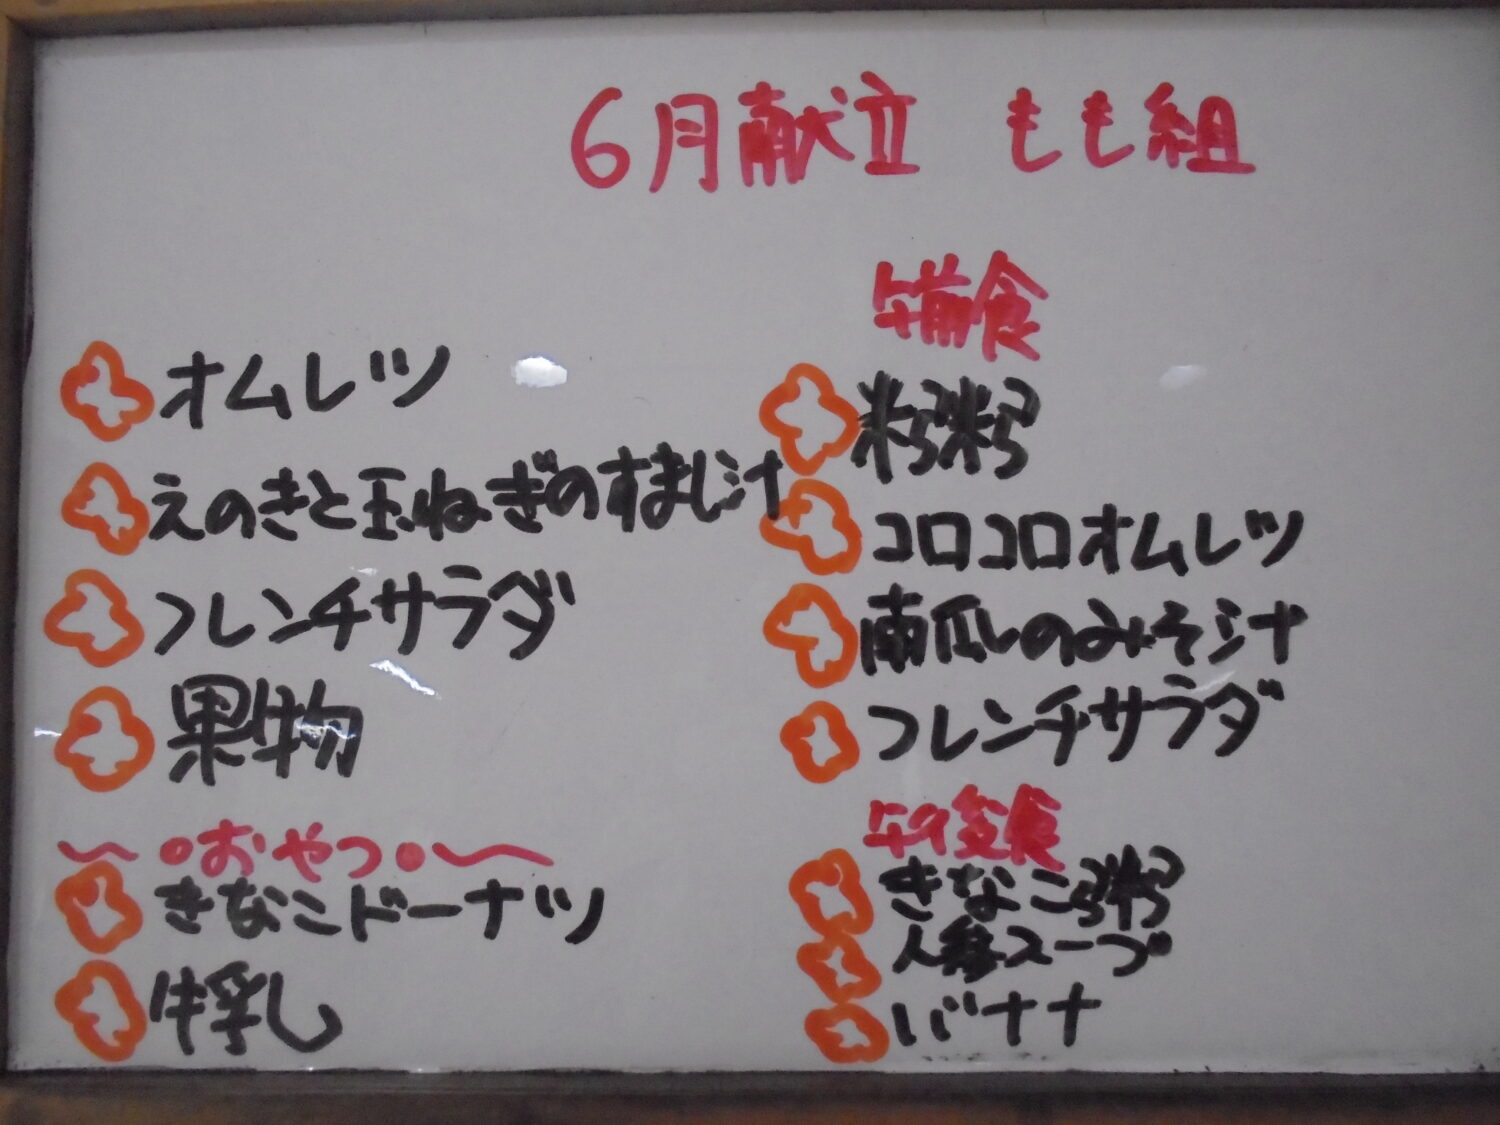 6月献立 もも組
オムレツ
えのきと玉ねぎのすまし汁
フレンチサラダ
果物
おやつ
きなこドーナツ
牛乳
午前食
コロコロオムレツ
南瓜のみそ汁
フレンチサラダ
午後食
きなこ粥
人参スープ
バナナ